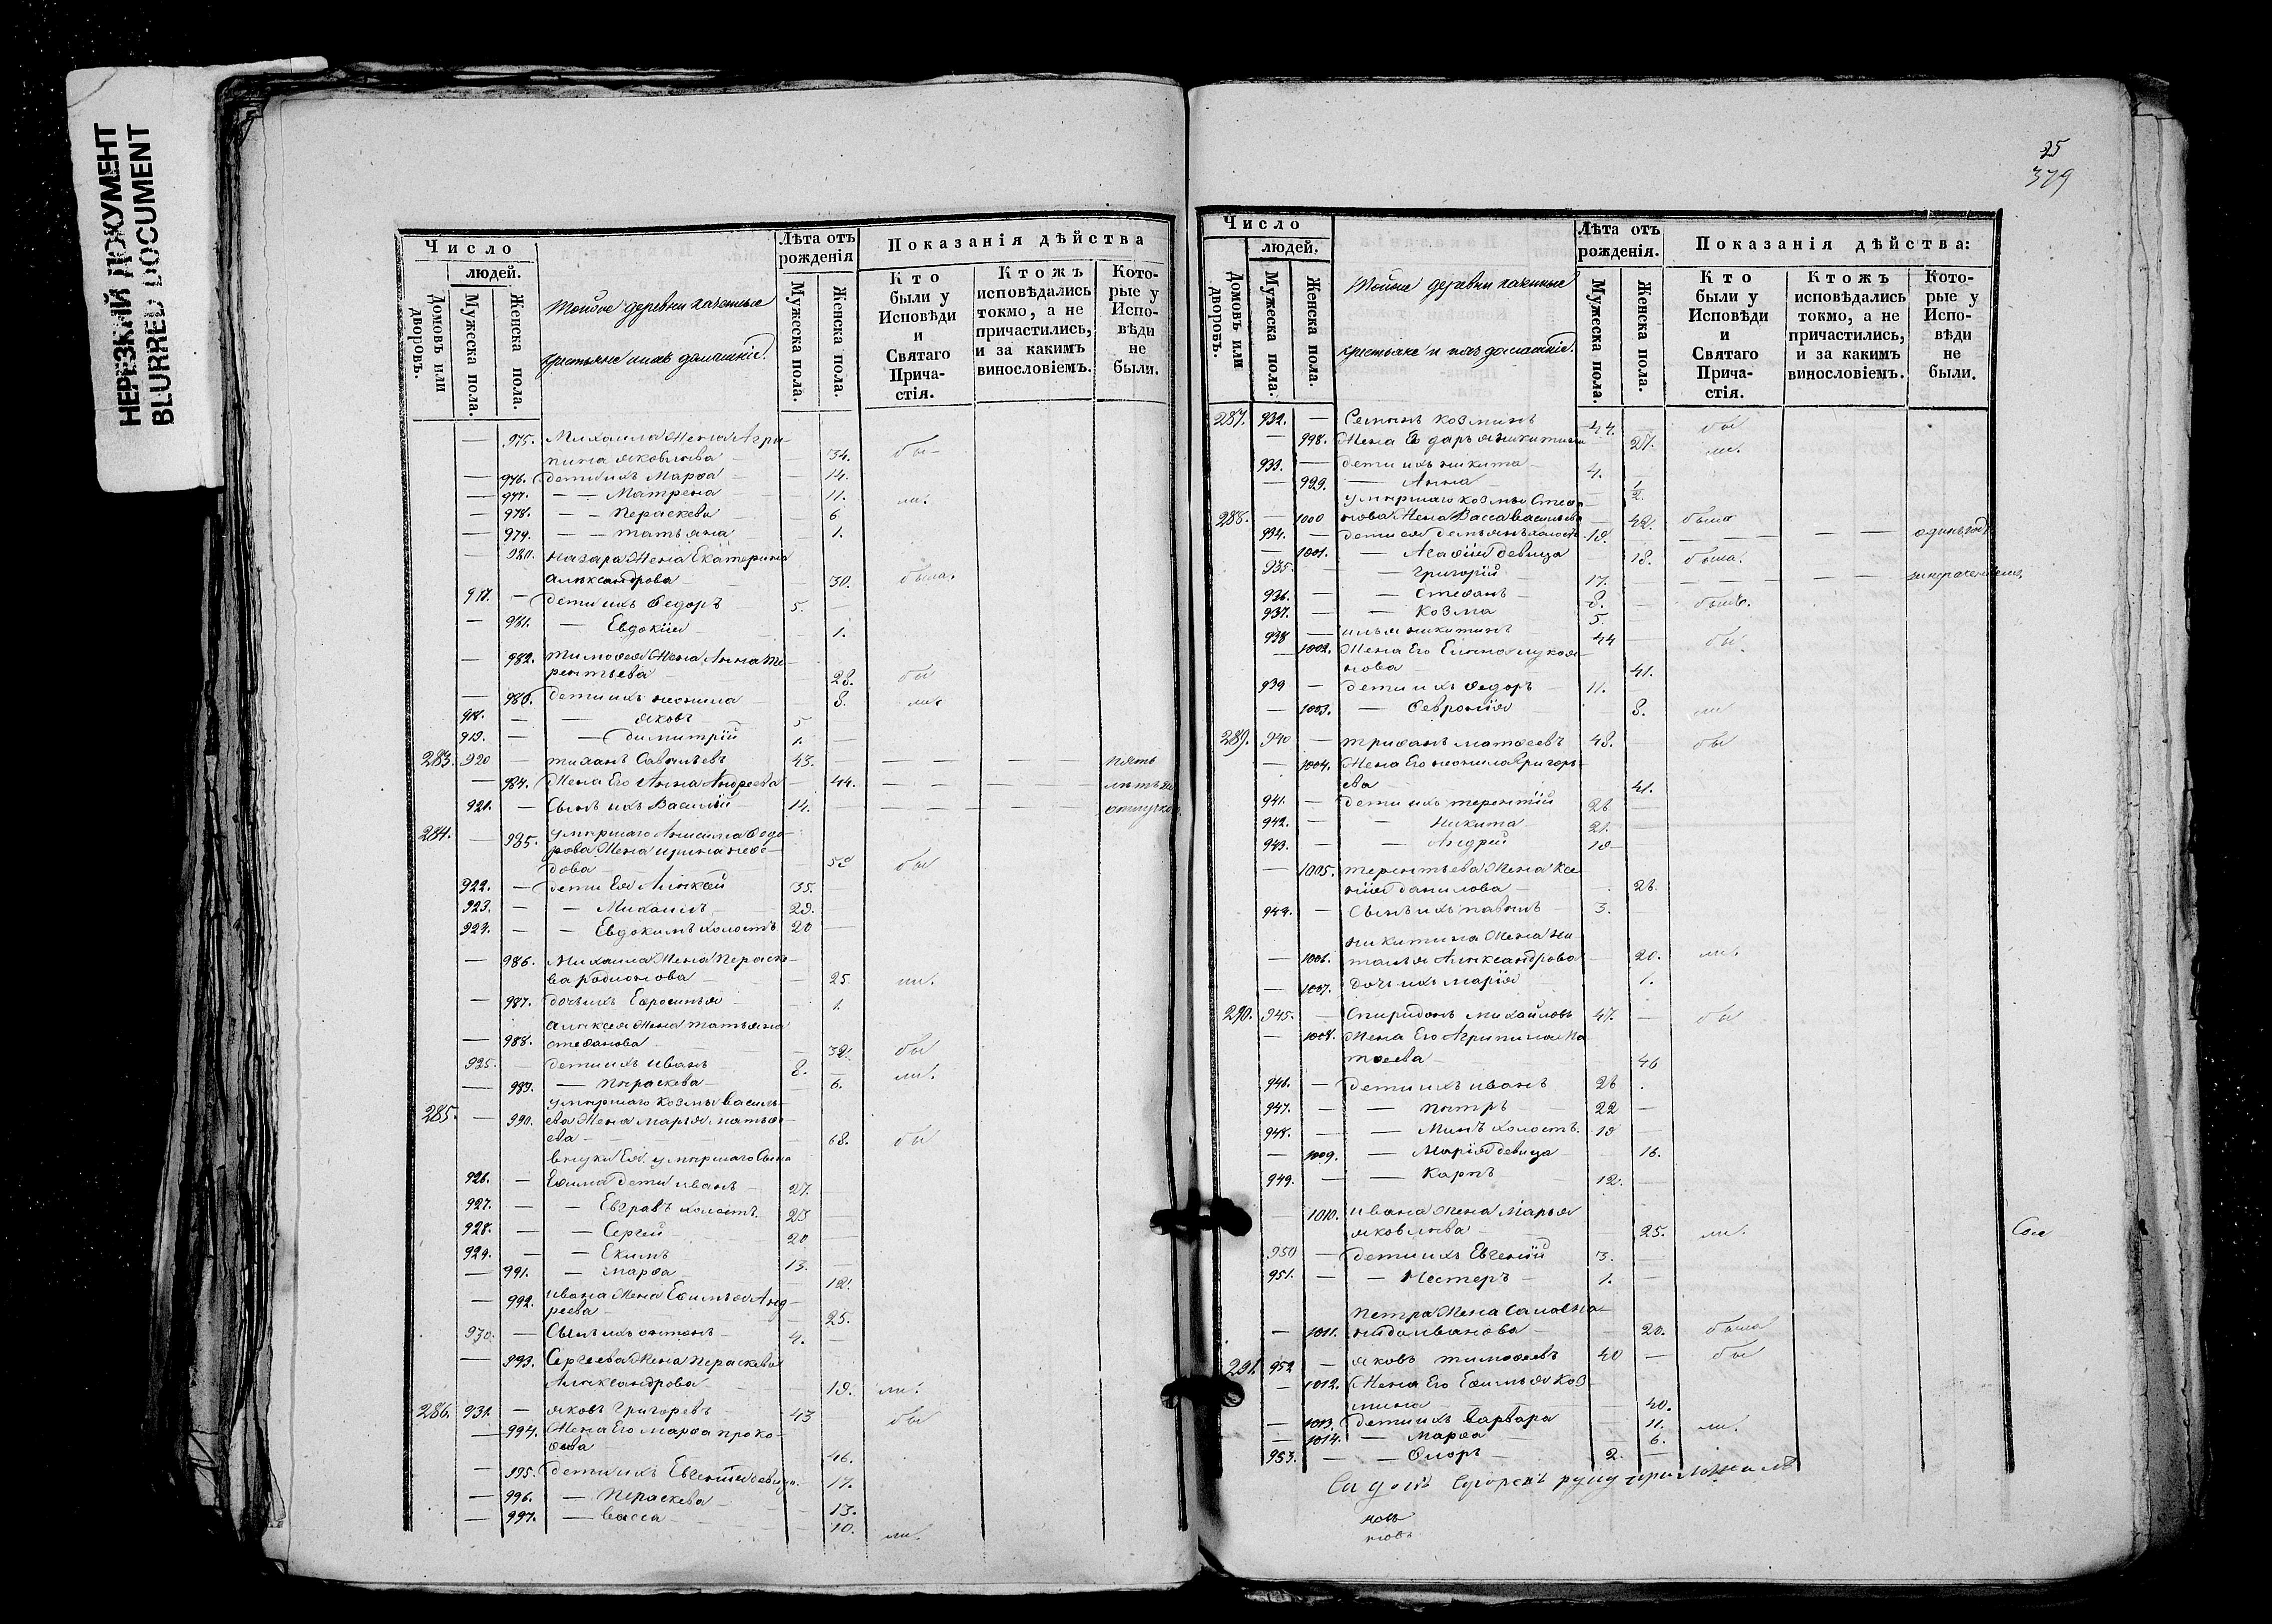 НЕРЕЗКИЙ ДОКУМЕНТ
BLURRED DOCUMENT
Число
людей.
Домовъ или дворовъ.
Мужеска пола.
Женска пола.
Тойже деревни казенные
крестьяне и ихъ домашніе.
Лѣта отъ рожденія
Мужеска пола.
Женска пола.
Показанія дѣйства
Кто были у Исповѣди и Святаго Причастія.
Ктожъ исповѣдались токмо, а не причастились, и за какимъ винословіемъ.
Которые у Исповѣди не были.
— 975. Михаила Жена Агри-
пина Яковлева — 34. бы-
— 976. дети ихъ Марфа — 14.
— 977. — — Матрена 11. ли.
— 978. — — Пераскева 6
— 979. — — татьяна 1.
980. назара Жена Екатерина
Александрова — 30. была.
917. — дети ихъ Федоръ 5. —
— 981. — Евдокія 1.
— 982. тимофея Жена Анна Те-
рентьева — 28. бы
— 983. дети ихъ неонила — 8. ли
918. — — яковъ 5
919. — — димитрій 1. —
283. 920 — тихонъ Савельевъ 43. — — — — — пять
— 984. Жена Его Анна Андреева — 44. — — — — летъ въ
921. — Сынъ ихъ Василій — 14. — — — — — отлучке.
284. — 985. умершаго Анисима Федо-
рова Жена ирина нефе-
дова — 58 бы
922. — дети Ея Алексей 35. —
923. — — Михаилъ 29. —
924. — — Евдокимъ холостъ 20 —
— 986. Михаила Жена Пераске-
ва родионова — 25. ли.
— 987. дочь ихъ Евросинья — 1.
Алексея Жена татьяна
— 988. стефанова — 32. бы
925. — дети ихъ иванъ 8. — ли.
— 989. — Пераскева — 6.
умершаго Козмы Василь-
285. — 990. ева Жена марья матфе-
ева — 68. бы
внуки Ея умершаго Сына
926. — Ефима дети иванъ — 27. —
927. — — Евграфъ холостъ. 23 —
928. — — Сергей 20 —
929. — — Екимъ 13. —
— 991. — марфа — 12.
— 992. ивана Жена Ефимья Анд-
реева — 25.
930. — Сынъ ихъ антонъ — 4. —
— 993. Сергеева Жена Пераскева
Александрова — 19. ли.
286. 931. — яковъ Григорьевъ 43 бы
— 994. Жена Его марфа проко-
фьева 46.
— 995. дети ихъ Евгенія девица. 17.
— 996. — Пераскева — 13.
— 997. — васса — 10. ли.
25
379
Число
людей.
Домовъ или дворовъ.
Мужеска пола.
Женска пола.
Тойже деревни казенные
крестьяне и ихъ домашніе.
Лѣта отъ рожденія.
Мужеска пола.
Женска пола.
Показанія дѣйства:
Кто были у Исповѣди и Святаго Причастія.
Ктожъ исповѣдались токмо, а не причастились, и за какимъ винословіемъ.
Которые у Исповѣди не были.
287. 932. — Семенъ Козминъ 44. — бы
— 998. Жена Его дарья никитина 27. ли.
933. — дети ихъ никита — 4. —
— 999. — Анна — 1/2.
умершаго Козмы Стефа-
288. — 1000 нова Жена Васса васильева — 42. была
934. — дети ея демьянъ холостъ 19. — — — — — — одинъ годъ
— 1001. — Агафія девица 18. была.
935. — — григорій 17. — — — — —
936. — — стефанъ 8. — былъ.
937. — — козма 5.
938 — илья никитинъ 44 — бы
— 1002. Жена Его Елена лукоя-
нова — 41.
939 — дети ихъ Федоръ 11.
— 1003. — Февронія 8. ли
289. 940 — трифонъ матфеевъ 48. — бы
— 1004. Жена Его неонила Григорь-
ева 41.
941. — дети ихъ терентій 26 —
942. — — никита 21. —
943. — — Андрей 19 —
— 1005. терентьева Жена Ксе-
нія данилова — 26.
944. — Сынъ ихъ павелъ — 3. —
никитина Жена На-
— 1006. талья Александрова — 20. ли.
— 1007. дочь ихъ марія — 1.
290. 945. — Спиридонъ михайловъ 47. — бы
— 1008. Жена Его Агрипина Ма-
тфеева — 46
946. — дети ихъ иванъ 26 .
947. — — петръ — 22 —
948. — — Минъ холостъ. 19 —
— 1009. — Марія девица 16.
949. — — Карпъ 12. —
— 1010. ивана Жена Марья
яковлева — 25. ли.
950 — дети ихъ Евгеній 3. —
951. — — Нестеръ — 1. —
Петра Жена Саломо-
— 1011. нида иванова — 20. была
291. 952 — яковъ тимофеевъ 40 — бы
— 1012. Жена Его Ефимья коз-
мина — 40.
— 1013. дети ихъ варвара — 11. ли.
— 1014. — Марфа — 6.
953. — — Флоръ — 2. —
руку приложилъ
Сол